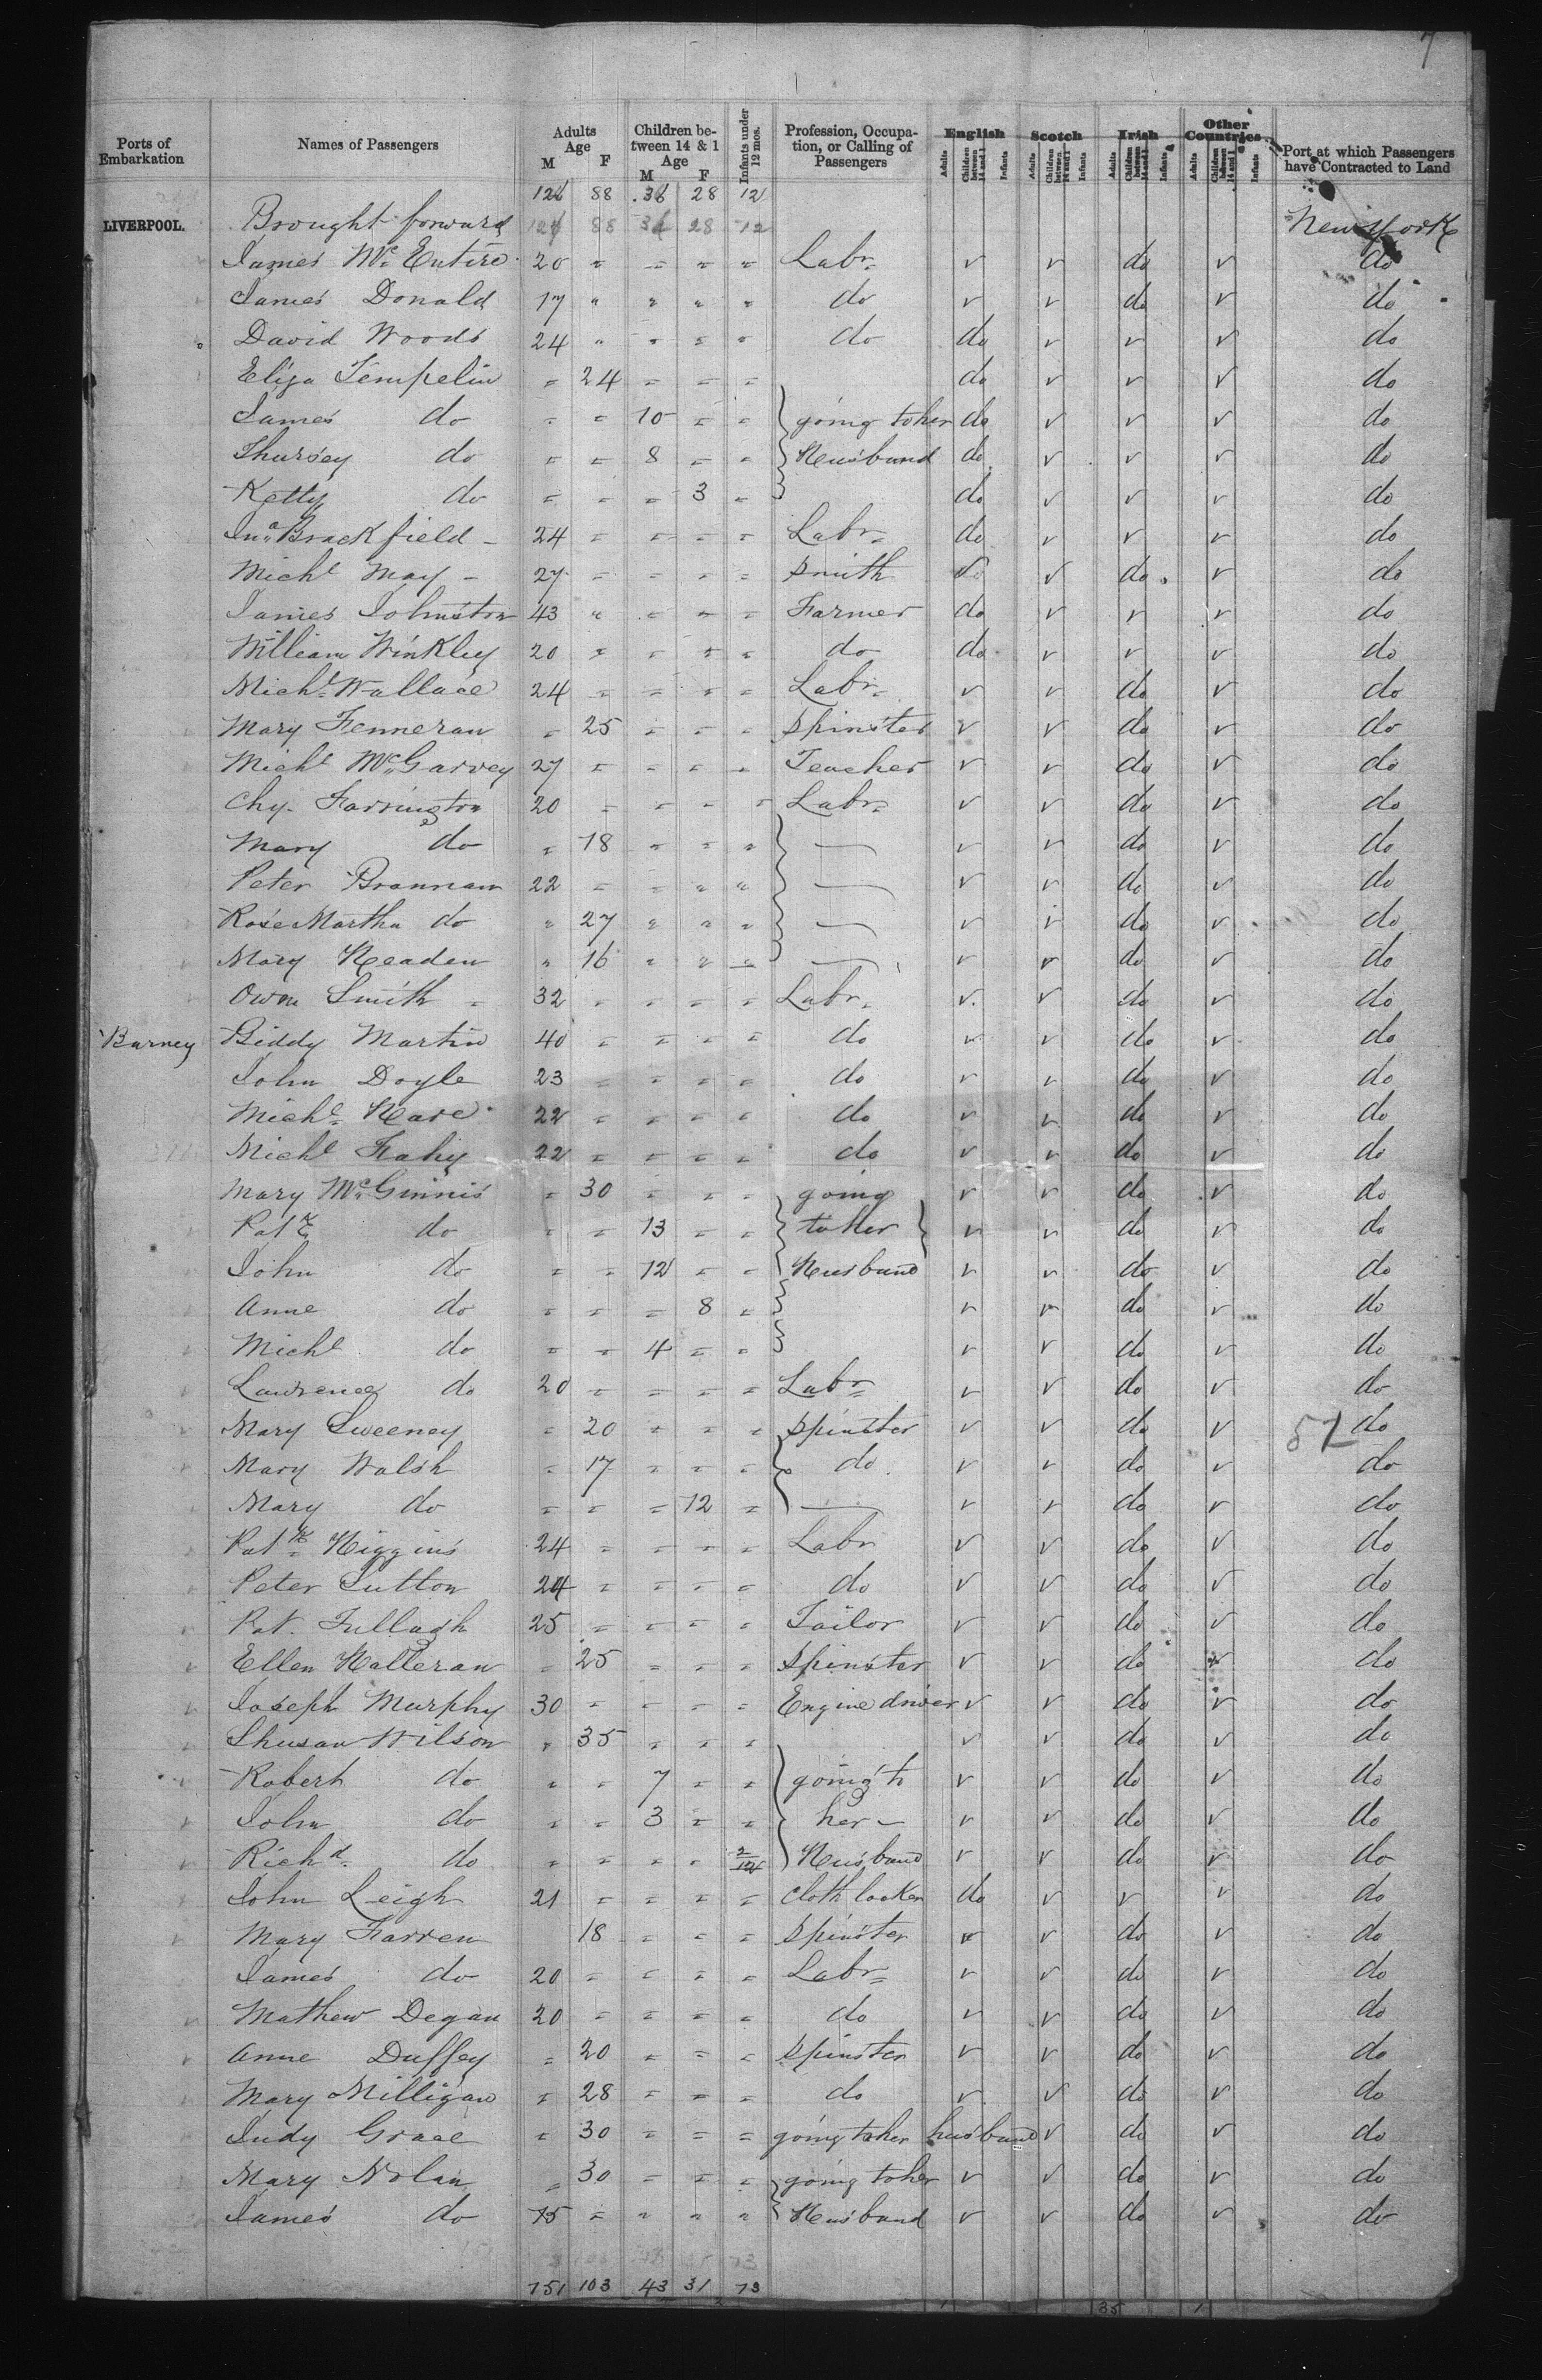 7
Ports of Embarkation Names of Passengers Adults Age M F Children between 14 & 1 Age M F Infants under 12 mos. Profession, Occupation, or Calling of Passengers English Adults Children between 14 and 1 Infants Scotch Adults Children between 14 and 1 Infants Irish Adults Children between 14 and 1 Infants Other Countries Adults Children between 14 and 1 Infants Port at which Passengers have Contracted to Land
126 88 36 28 12
LIVERPOOL. Brought forward 126 88 36 28 12 New York
James McEntire 20 " " " " Labr v v do v do
James Donald 17 " " " " do v v do v do
David Woods 24 " " " " do do v v v do
Eliza Tempelin " 24 " " " do v v v do
James do " " 10 " " going to her do v v v do
Thursey do " " 8 " " Husband do v v v do
Ketty do " " " 3 " do v v v do
Jno Brackfield - 24 " " " " Labr do v v v do
Michl May - 27 " " " " Smith v v do v do
James Johnston 43 " " " " Farmer do v v v do
William Winkley 20 " " " " do do v v v do
Michl Wallace 24 " " " " Labr v v do v do
Mary Fenneran " 25 " " " Spinster v v do v do
Michl McGarvey 27 " " " " Teacher v v do v do
Chy. Farrington 20 " " " " Labr v v do v do
Mary do " 18 " " " — v v do v do
Peter Brannan 22 " " " " — v v do v do
Rose Martha do " 27 " " " — v v do v do
Mary Headen " 16 " " " — v v do v do
Owen Smith 32 " " " " Labr v v do v do
Barney Biddy Martin 40 " " " " do v v do v do
John Doyle 23 " " " " do v v do v do
Michl Hare 22 " " " " do v v do v do
Michl Fahy 22 " " " " do v v do v do
Mary McGinnis " 30 " " " going v v do v do
Patk do " " 13 " " to her v v do v do
John do " " 12 " " Husband v v do v do
Anne do " " " 8 " v v do v do
Michl do " " 4 " " v v do v do
Lawrence do 20 " " " " Labr v v do v do
Mary Sweeney " 20 " " " Spinster v v do v 52 do
Mary Walsh " 17 " " " do v v do v do
Mary do " " " 12 " — v v do v do
Patk Higgins 24 " " " " Labr v v do v do
Peter Sutton 24 " " " " do v v do v do
Pat. Tullagh 25 " " " " Tailor v v do v do
Ellen Halleran " 25 " " " Spinster v v do v do
Joseph Murphy 30 " " " " Engine driver v v do v do
Shusan Wilson " 35 " " " v v do v do
Robert do " " 7 " " going to v v do v do
John do " " 3 " " her - v v do v do
Richd. do " " " " 2/12 Husband v v do v do
John Leigh 21 " " " " Cloth looker do v v v do
Mary Farren 18 " " " Spinster v v do v do
James do 20 " " " " Labr v v do v do
Mathew Degan 20 " " " " do v v do v do
Anne Duffey " 20 " " " Spinster v v do v do
Mary Milligan " 28 " " " do v v do v do
Judy Grace " 30 " " " going to her husband v do v do
Mary Nolan " 30 " " " going to her v v do v do
James do 15 " " " " Husband v v do v do
151 103 43 31 13
35 1